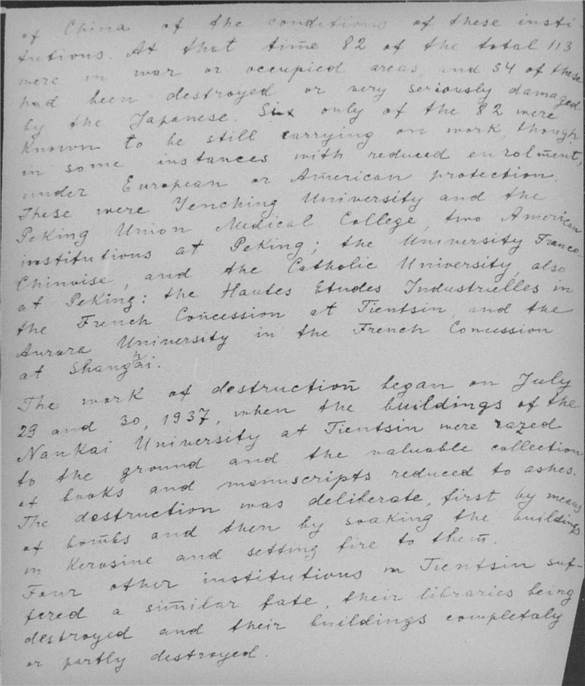 of China of the conditions of these insti
tutions. At that time 82 of the total 113
were in war or occupied areas, and 54 of these
had been destroyed or very seriously damaged
by the Japanese. Six only of the 82 were
known to be still carrying on work, though
in some instances with reduced enrolment,
under European or American protection.
These were Yenching University and the
Peking Union Medical College, two American
institutions at Peking; the University Franco
Chinoise, and the Catholic University, also
at Peking: the Hautes Etudes Industrielles in
the French Concession at Tientsin, and the
Aurora University in the French Concussion
at Shanghai.
The work of destruction began on July
29 and 30, 1937, when the buildings of the
Nankai University at Tientsin were razed
to the ground and the valuable collection
of books and manuscripts reduced to ashes.
The destruction was deliberate, first by means
of bombs and then by soaking the buildings
in kerosine and setting fire to them.
Four other institutions in Tientsin suf-
fered a similar fate, their libraries being
destroyed and their buildings completaly
or partly destroyed.